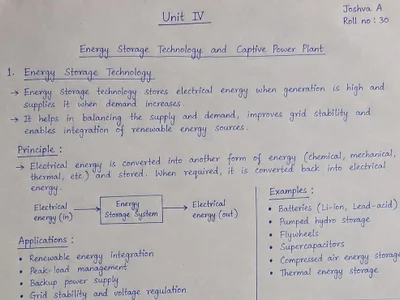 Unit IV
Joshva A
Roll no : 30
Energy Storage Technology and Captive Power Plant
1. Energy Storage Technology
→ Energy Storage technology stores electrical energy when generation is high and
supplies it when demand increases.
→ It helps in balancing the supply and demand, improves grid stability and
enables integration of renewable energy sources.
Principle :
→ Electrical energy is converted into another form of energy (chemical, mechanical,
thermal, etc) and stored. When required, it is converted back into electrical
energy.
Electrical
energy (in)
Energy
Storage System
Electrical
energy (out)
Applications :
• Renewable energy integration
• Peak-load management
• Backup power supply
• Grid stability and voltage regulation
Examples :
• Batteries (Li-ion, Lead-acid)
• Pumped hydro storage
• Flywheels
• Supercapacitors
• Compressed air energy storage
• Thermal energy storage